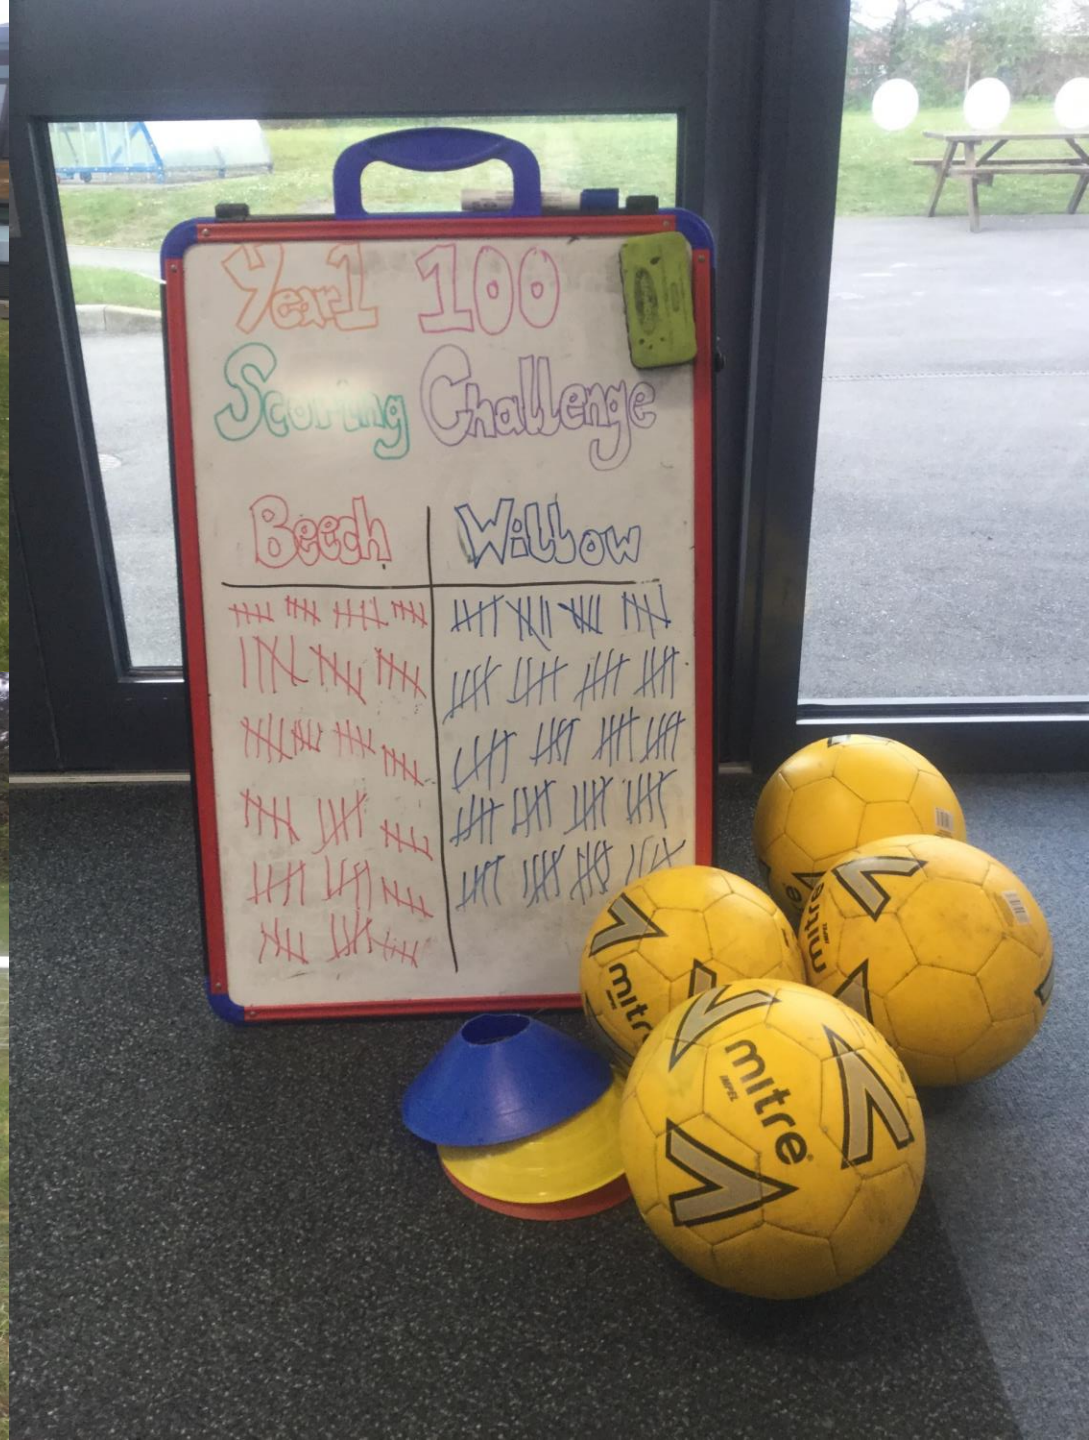 Year 1 100
Scoring Challenge
Beech Willow
mitre
mitre
mitre
IMPEL